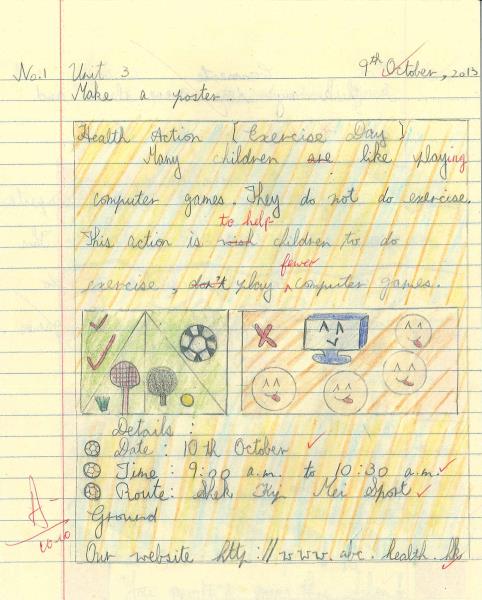 No.1 Unit 3 9th October, 2013
Make a poster.
Health Action [Exercise Day]
Many children are like playing
computer games. They do not do exercise.
to help
This action is wish children to do
fewer
exercise, don't play ^ computer games.
Details :
Date : 10th October
Time : 9:00 a.m. to 10:30 a.m.
Route : Shek Kip Mei Sport
Ground
Our website http://www.abc.health.hk
A-
10-10